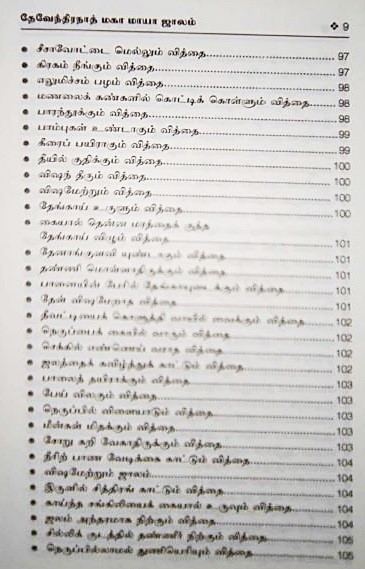 தேவேந்திரநாத் மகா மாயா ஜாலம் ❖ 9
● சீசாவோட்டை மெல்லும் வித்தை 97
● கிரகம் நீங்கும் வித்தை 97
● எலுமிச்சம் பழம் வித்தை 98
● மணலைக் கண்களில் கொட்டிக் கொள்ளும் வித்தை 98
● பாரந்தூக்கும் வித்தை 98
● பாம்புகள் உண்டாகும் வித்தை 99
● கீரைப் பயிராகும் வித்தை 99
● தீயில் குதிக்கும் வித்தை 100
● விஷந் தீரும் வித்தை 100
● விஷமேற்றும் வித்தை 100
● தேங்காய் உருளும் வித்தை 100
● கையால் தென்ன மரத்தைக் குத்த
தேங்காய் விழும் வித்தை 101
● தேனாங்குளவி யுண்டாகும் வித்தை 101
● தண்ணி மொள்ளாதிருக்கும் வித்தை 101
● பாளையின் பேரில் தேங்காயுடைக்கும் வித்தை 101
● தேள் விஷமேறாத வித்தை 101
● தீவட்டியைக் கொளுத்தி வாயில் வைக்கும் வித்தை 102
● நெருப்பைக் கையில் வாரும் வித்தை 102
● செக்கில் எண்ணெய் வராத வித்தை 102
● ஜலத்தைக் கவிழ்த்துக் காட்டும் வித்தை 102
● பாலைத் தயிராக்கும் வித்தை 103
● பேய் விலகும் வித்தை 103
● நெருப்பில் விளையாடும் வித்தை 103
● மீன்கள் மிதக்கும் வித்தை 103
● சோறு கறி வேகாதிருக்கும் வித்தை 103
● நீரிற் பாண வேடிக்கை காட்டும் வித்தை 104
● விஷமேற்றும் ஜாலம் 104
● இருளில் சித்திரங் காட்டும் வித்தை 104
● காய்ந்த சங்கிலியைக் கையால் உருவும் வித்தை 104
● ஜலம் அந்தரமாக நிற்கும் வித்தை 104
● சில்லிக் குடத்தில் தண்ணீர் நிற்கும் வித்தை 105
● நெருப்பில்லாமல் துணியெரியும் வித்தை 105